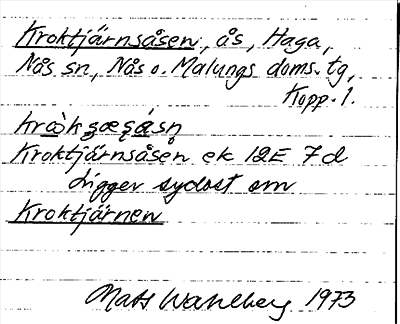 Kroktjärnsåsen, ås, Haga,
Nås sn, Nås o. Malungs doms. tg,
Kopp. l.
Kroktjärnsåsen ek 12E 7d
Ligger sydost om
Kroktjärnen
Mats Wahlberg 1973